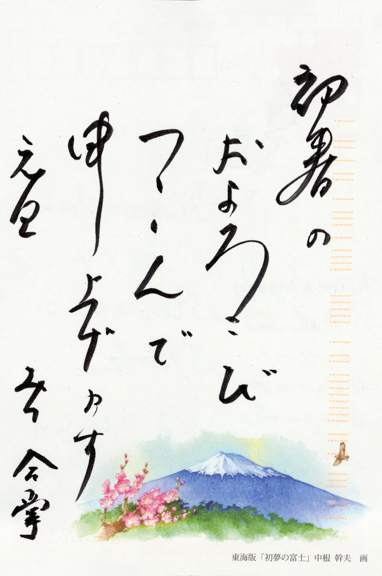 初春の
およろこび
つゝしんで
申し上げます
元旦
合掌
東海版「初夢の富士」中根 幹夫 画